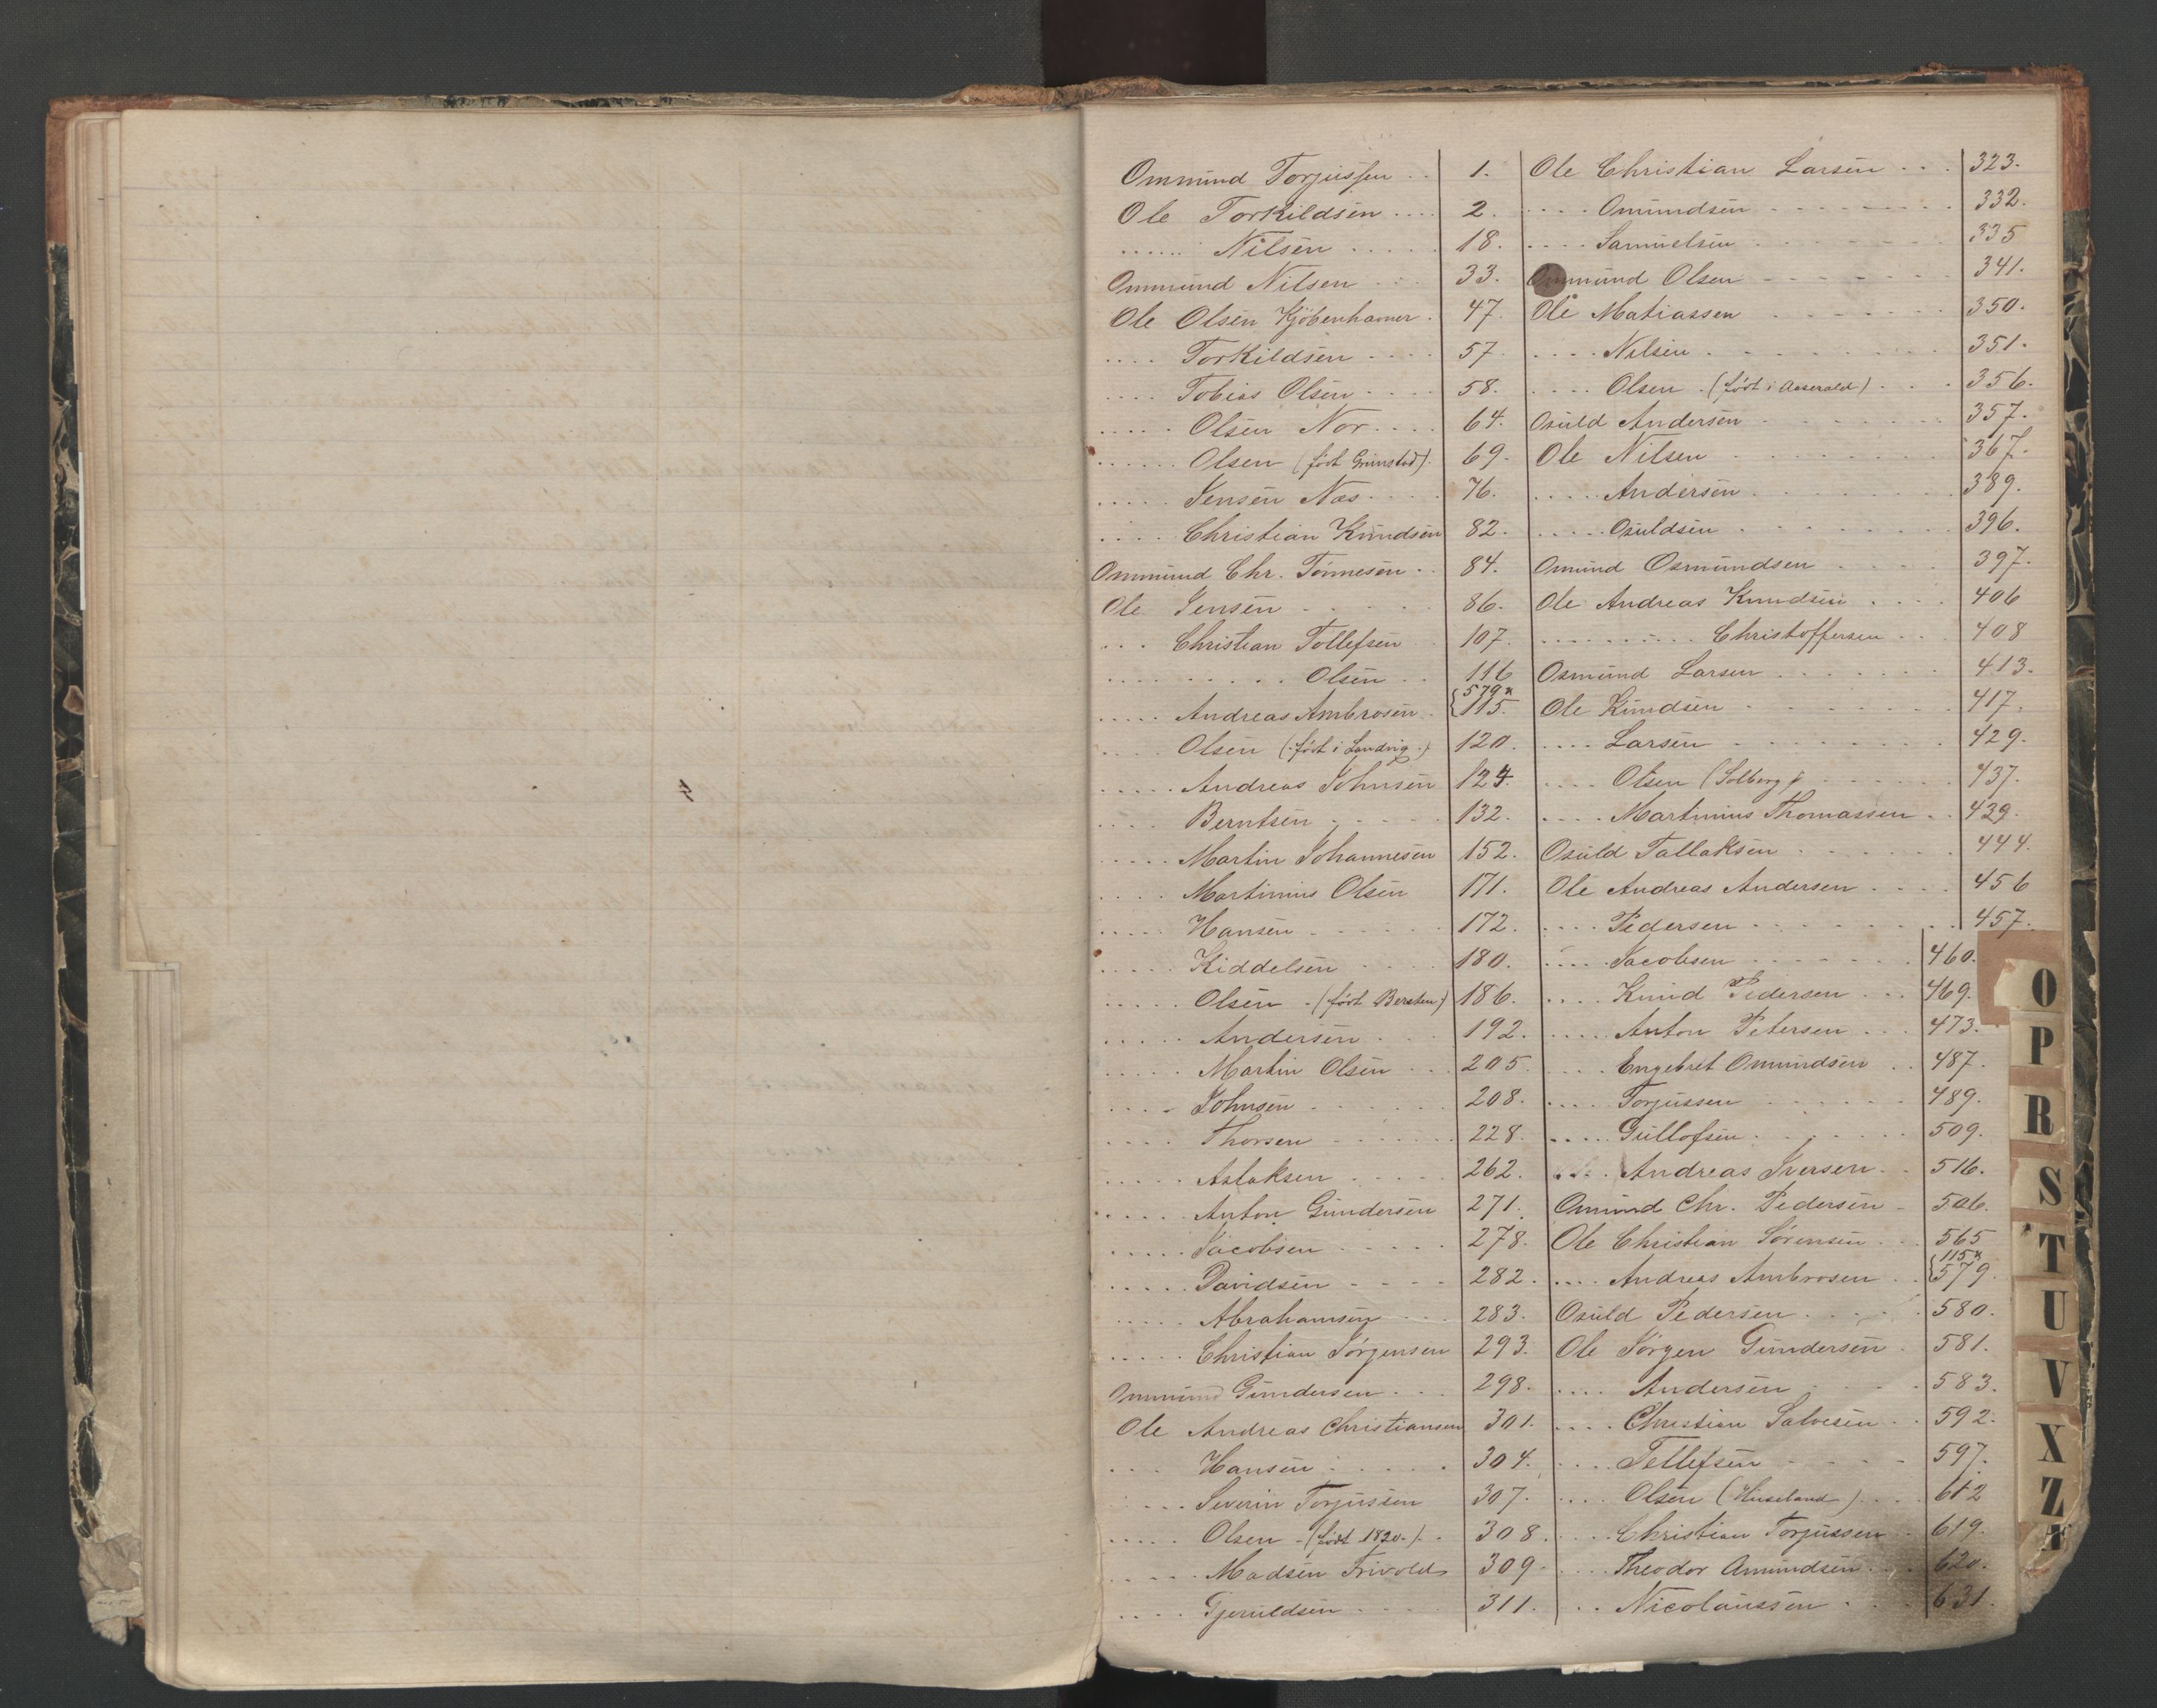 Ommund Torjussen . . 1.
Ole Torkildsen .... 2.
...... Nilsen ..... 18.
Ommund Nilsen ... 33.
Ole Olsen Kjöbenhavner . 47.
.... Torkildsen .... 57.
.... Tobias Olsen .... 58.
..... Olsen Nor .... 64.
...... Olsen (födt Grimstad). 69.
..... Jensen Næs .... 76.
.... Christian Knudsen 82.
Ommund Chr. Tönnesen .. 84.
Ole Jensen ..... 86.
... Christian Tollefsen .. 107.
......... Olsen .. 116
..... Andreas Ambrosen . {579" 115.
.... Olsen (födt i Landvig.) 120.
..... Andreas Johnsen 124.
.... Berntsen ..... 132.
..... Martin Johannesen 152.
.... Martinius Olsen 171.
..... Hansen ..... 172.
..... Kiddelsen .... 180.
..... Olsen - (födt Bersten) 186.
..... Andersen ... 192.
..... Martin Olsen ... 205.
.... Johnsen ..... 208.
.... Thorsen ..... 228.
..... Aslaksen ..... 262.
..... Anton Gundersen 271.
..... Jacobsen ..... 278.
..... Davidsen .... 282.
..... Abrahamsen ... 283.
..... Christian Jörgensen 293.
Ommund Gundersen ... 298.
Ole Andreas Christiansen 301.
... Hansen ..... 304.
.... Severin Torjussen 307.
..... Olsen - (födt 1820.). . 308.
..... Madsen Trivolds 309.
.... Gjeruldsen .... 311.
Ole Christian Larsen ... 323.
.... Omundsen ....... 332.
.... Samuelsen ...... 335
Ommund Olsen ...... 341.
Ole Matiassen ...... 350.
.... Nilsen ........ 351.
.... Olsen . (födt i Aaserald) ... 356.
Osuld Andersen ...... 357.
Ole Nilsen ....... 367.
..... Andersen ....... 389.
..... Osuldsen ....... 396.
Omund Osmundsen .... 397.
Ole Andreas Knudsen .... 406
......... Christoffersen ... 408
Osmund Larsen ...... 413.
Ole Knudsen ....... 417.
.... Larsen ....... 429.
.... Olsen (Solberg) ..... 437.
.... Martinius Thomassen .. 439.
Osuld Tallaksen ...... 444.
Ole Andreas Andersen .... 456
.... Pedersen ........ 457.
..... Jacobsen ...... 460.
.... Knud Pedersen ... 469.
..... Anton Petersen ... 473.
.... Engebret Omundsen .. 487.
.... Torjussen ...... 489.
..... Gullofsen ...... 509.
.... Andreas Iversen .. 516.
Omund Chr. Pedersen - 506.
Ole Christian Sörensen ... 565
.... Andreas Ambrosen .. {115" 579.
Osuld Pedersen ..... 580.
Ole Jörgen Gundersen . 581.
.... Andersen .... 583.
.... Christian Salvesen .. 592.
.... Tellefsen ..... 597.
.... Olsen (Huseland) .... 612
.... Christian Torjussen .. 619.
.... Theodor Amundsen ... 620.
... Nicolaussen .... 631.
O
P
R
S
T
U
V
X
Z